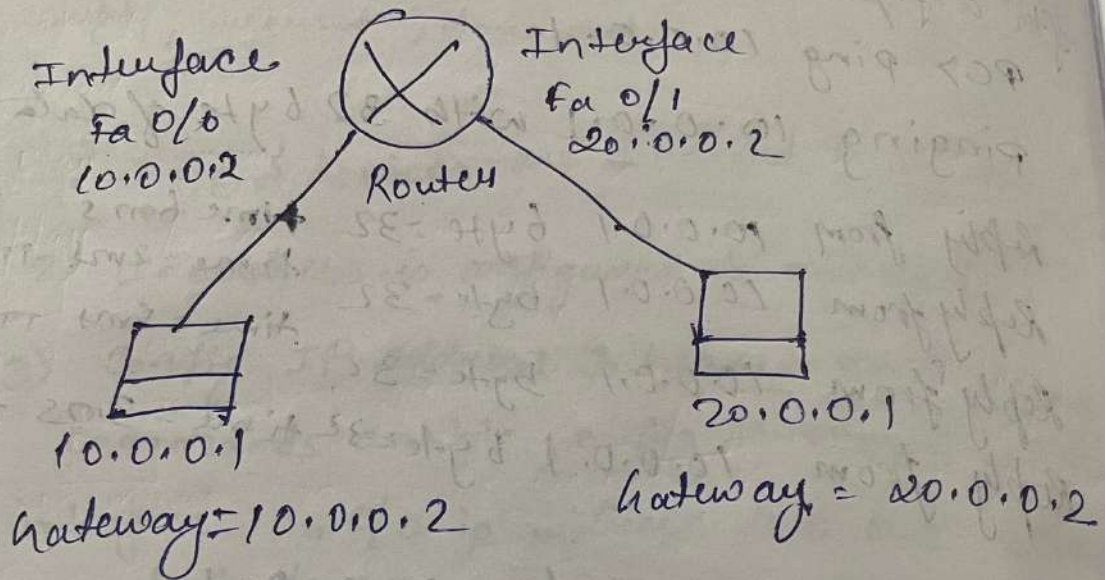 Interface
Fa 0/0
10.0.0.2
Interface
Fa 0/1
20.0.0.2
Router
10.0.0.1
Gateway=10.0.0.2
20.0.0.1
Gateway = 20.0.0.2